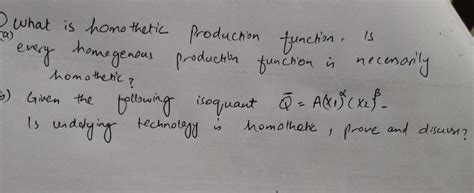 what is homothetic production function. Is
(a) every homegenous production function is necessarily
homothetic?
b) Given the following isoquant Q̄ = A(X1)^α (X2)^β -
Is undelying technology is homothetic, prove and discuss?